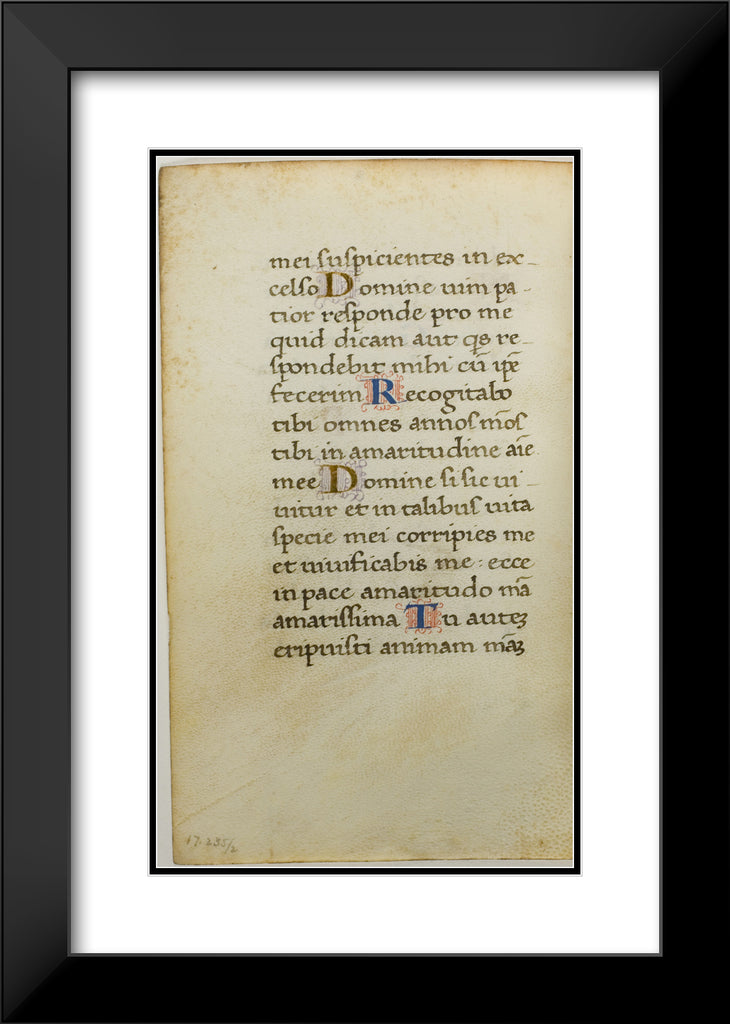 mei suspicientes in ex-
celso Domine uim pa-
tior responde pro me
quid dicam aut q̄s re-
spondebit mihi cū ip̄e
fecerim Recogitabo
tibi omnes annos mōs
tibi in amaritudine aīe
mee Domine si sic ui-
uitur et in talibus uita
specie mei corripies me
et uiuificabis me : ecce
in pace amaritudo mā
amarissima Tu auteȝ
eripuisti animam māȝ
17.235/2